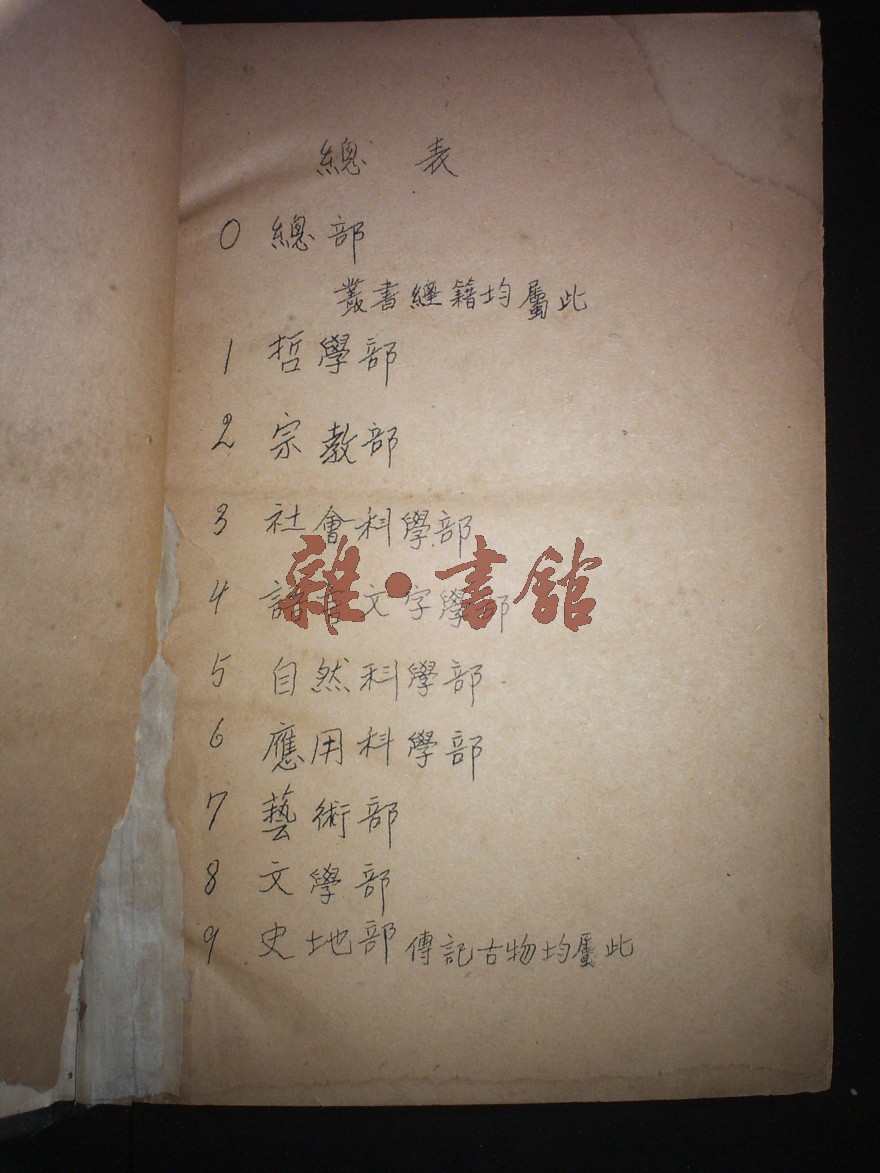 總 表
0 總部
叢書經籍均屬此
1 哲學部
2 宗教部
3 社會科學部
4 語言文字學部
雜·書館
5 自然科學部
6 應用科學部
7 藝術部
8 文學部
9 史地部 傳記古物均屬此